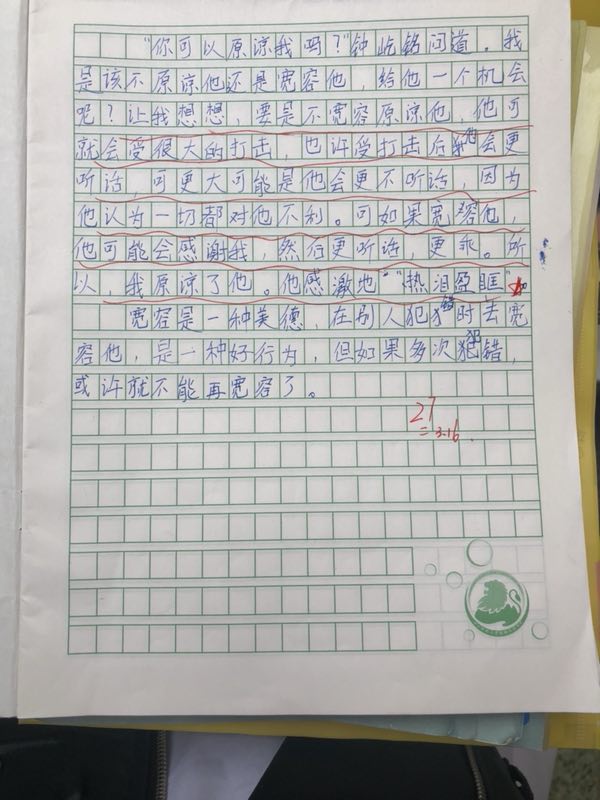 “你可以原凉我吗?”钟屹铭问道。我
是该不原凉他还是宽容他,给他一个机会
呢?让我想想,要是不宽容原凉他,他可
就会受很大的打击,也许受打击后他会更
听话,可更大可能是他会更不听话,因为
他认为一切都对他不利。可如果宽容他,
他可能会感谢我,然后更听话,更乖。所
以,我原凉了他。他感激地“热泪盈眶”
宽容是一种美德,在别人犯错时去宽
容他,是一种好行为,但如果多次犯错,
或许就不能再宽容了。
27
= 3.16.